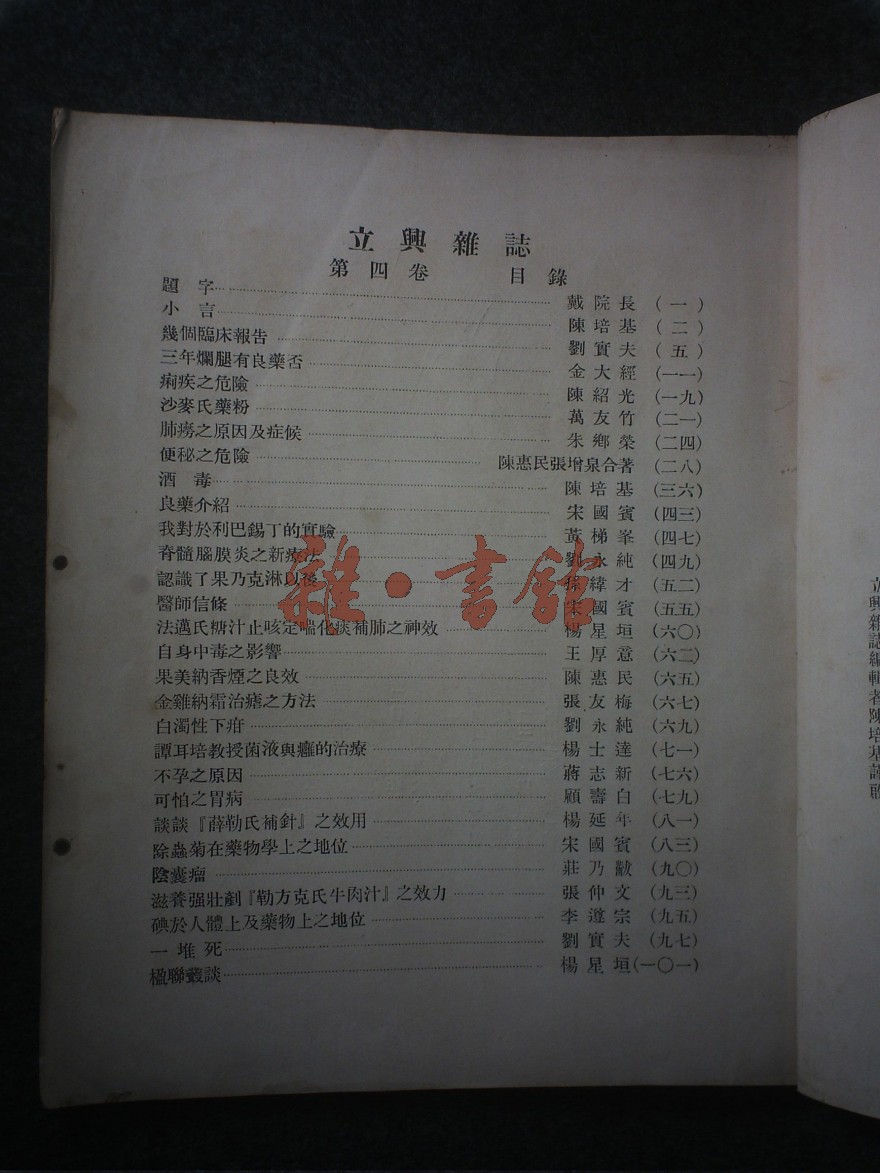 立興雜誌
第四卷 目錄
題字 戴院長 (一)
小言 陳培基 (二)
幾個臨床報告 劉實夫 (五)
三年爛腿有良藥否 金大經 (一一)
痢疾之危險 陳紹光 (一九)
沙麥氏藥粉 萬友竹 (二一)
肺癆之原因及症候 朱鄉榮 (二四)
便秘之危險 陳惠民張增泉合著 (二八)
酒毒 陳培基 (三六)
良藥介紹 宋國賓 (四三)
我對於利巴錫丁的實驗 黃梯峯 (四七)
脊髓腦膜炎之新療法 劉永純 (四九)
認識了果乃克淋以後 緯才 (五二)
醫師信條 宋國賓 (五五)
法邁氏糖汁止咳定喘化痰補肺之神效 楊星垣 (六〇)
自身中毒之影響 王厚意 (六二)
果美納香煙之良效 陳惠民 (六五)
金雞納霜治瘧之方法 張友梅 (六七)
白濁性下疳 劉永純 (六九)
譚耳培教授菌液與癰的治療 楊士達 (七一)
不孕之原因 蔣志新 (七六)
可怕之胃病 顧壽白 (七九)
談談『薛勒氏補針』之效用 楊延年 (八一)
除蟲菊在藥物學上之地位 宋國賓 (八三)
陰囊瘤 莊乃黻 (九〇)
滋養强壯劑『勒方克氏牛肉汁』之效力 張仲文 (九三)
碘於人體上及藥物上之地位 李遵宗 (九五)
一堆死 劉實夫 (九七)
楹聯叢談 楊星垣 (一〇一)
雜·書館
立興雜誌編輯者陳培基謹啟